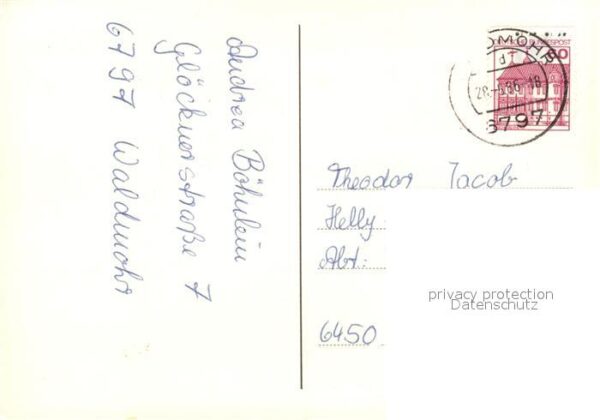 Andrea Böhnlein
Glöcknerstraße 7
6797 Waldmohr
60
BUNDESPOST
WALDMOHR
d
28.-6.86.-18
6797
Theodor Jacob
Helly
Abt:
6450
privacy protection
Datenschutz